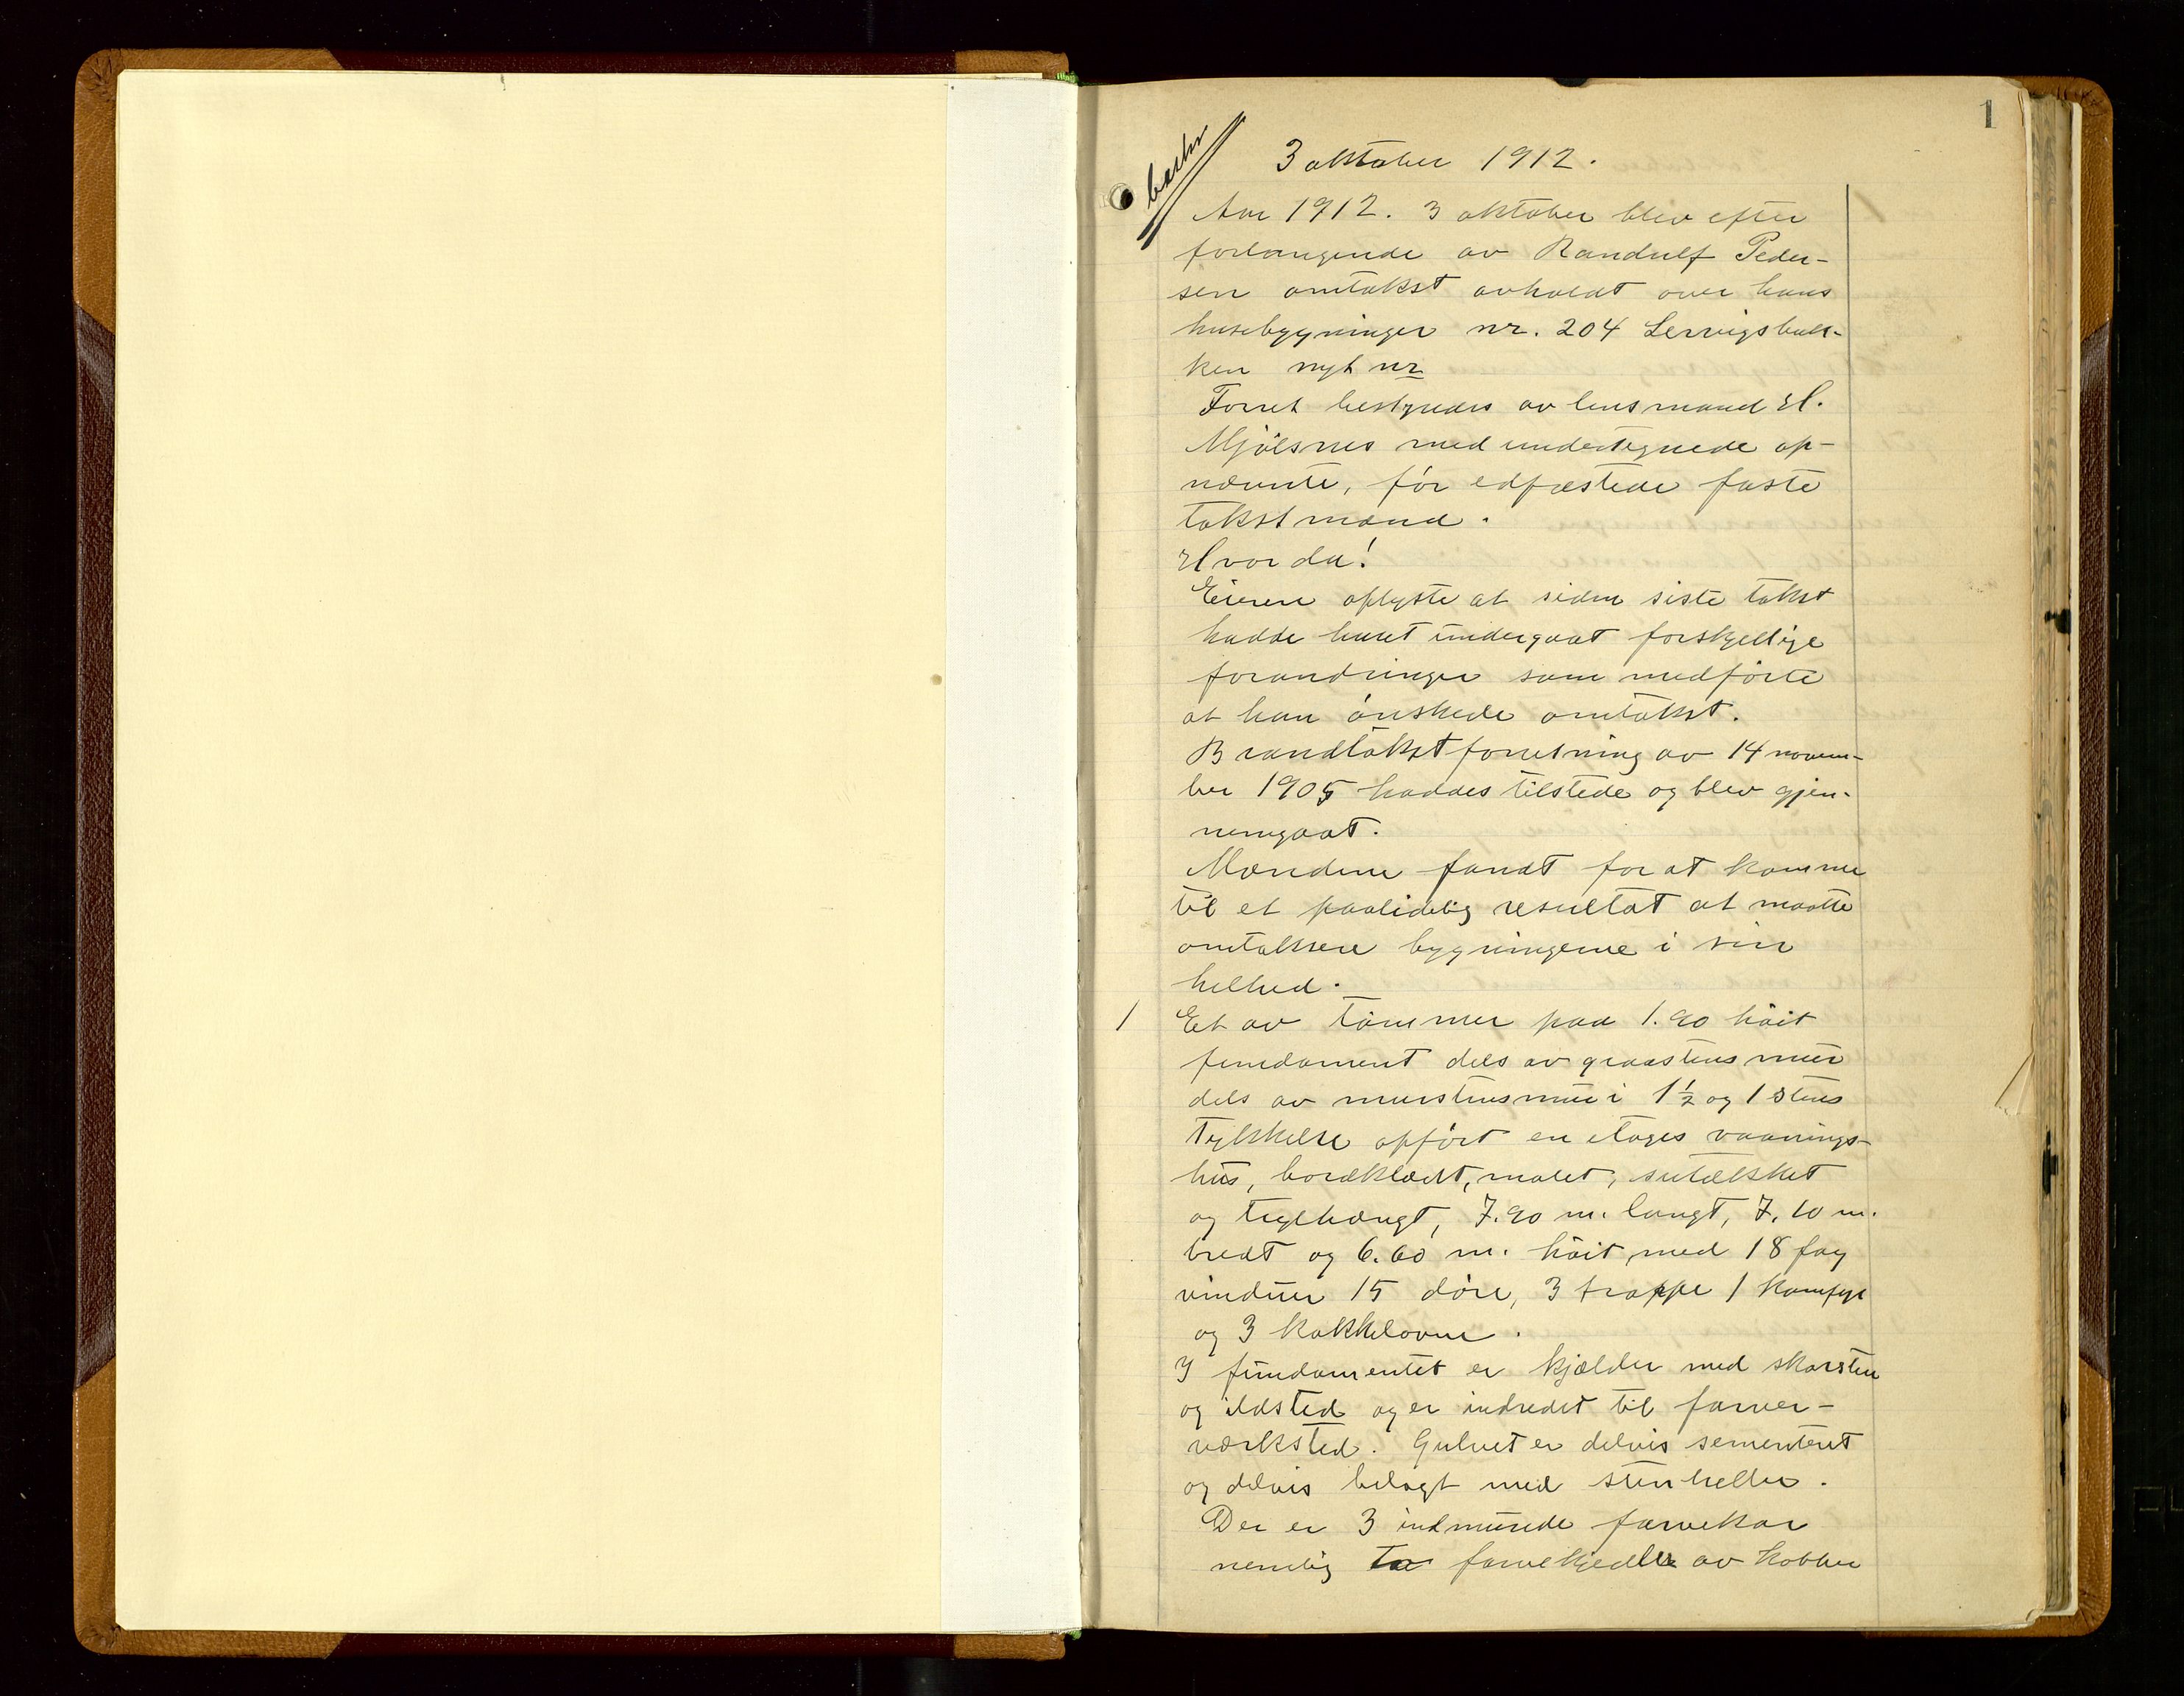 1
3 oktober 1912.
Aar 1912. 3 oktober blev efter
forlangende av Randulf Peder-
sen omtakst avholdt over hans
husebygninger nr. 204 Lervigsbak-
ken nyt nr
Forret bestyredes av lensmand H.
Mjølsnes med undertegnede op-
nævnte, før edfæstede faste
takstmænd.
Hvorda!
Eieren oplyste at siden siste takst
hadde huset undergaat forskjellige
forandringer som medførte
at han ønskede omtakst.
Brandtakstforretning av 14 novem-
ber 1905 haddes tilstede og blev gjen-
nemgaat.
Mændene fandt for at komme
til et paalidelig resultat at maatte
omtaksere bygningerne i sin
helhed.
1 Et av tømmer paa 1.90 høit
fundament dels av graastens mur
dels av murstensmur i 1½ og 1 stens
tykkelse opført en etages vaanings-
hus, bordklædt, malet, sutakket
og teglhængt, 7.90 m. langt, 7.10 m.
bredt og 6.60 m. høit med 18 fag
vinduer 15 døre, 3 trappe 1 komfyr
og 3 kakkelovne.
I fundamentet er kjælder med skorsten
og ildsted og er indredet til farver-
værksted. Gulvet er delvis sementeret
og delvis belagt med stenheller.
Der er 3 indmurede farvekar
nemlig to farvekjedler av kobber